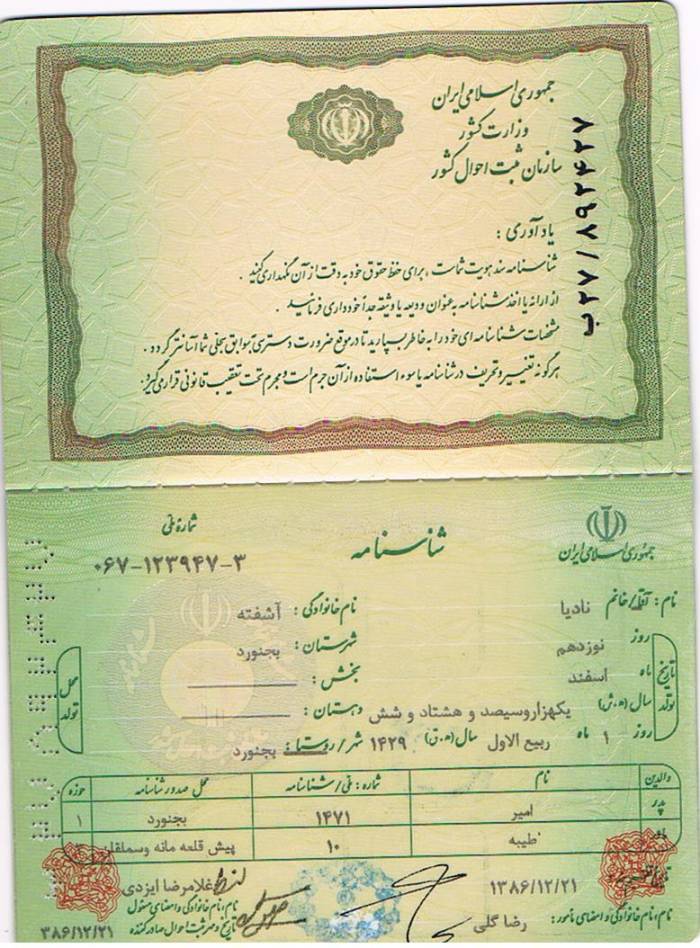 جمهوری اسلامی ایران
وزارت کشور
سازمان ثبت احوال کشور
ب۲۷/۸۹۲۴۲۷
یادآوری :
شناسنامه سند هویت شماست ، برای حفظ حقوق خود به دقت از آن نگهداری کنید .
از ارائه یا اخذ شناسنامه به عنوان ودیعه یا وثیقه جداً خودداری فرمائید .
مشخصات شناسنامه ای خود را به خاطر بسپارید تا در موقع ضرورت دسترسی به سوابق سجلی شما آسانتر گردد .
هرگونه تغییر و تحریف در شناسنامه یا سوء استفاده از آن جرم است و مجرم تحت تعقیب قانونی قرار می گیرد .
جمهوری اسلامی ایران
شناسنامه
شماره ملی
۰۶۷-۱۲۳۹۴۷-۳
نام : آقا/خانم نادیا نام خانوادگی : آشفته
تاریخ تولد
روز نوزدهم شهرستان : بجنورد
ماه اسفند بخش :
سال (ه.ش) یکهزاروسیصد و هشتاد و شش دهستان :
روز ۱ ماه ربیع الاول سال (ه.ق) ۱۴۲۹ شهر/روستا : بجنورد
محل تولد
والدین نام شماره : ملی/شناسنامه محل صدور شناسنامه حوزه
پدر امیر ۱۴۷۱ بجنورد ۱
مادر طیبه ۱۰ پیش قلعه مانه وسملقان
۱۳۸۶/۱۲/۲۱ غلامرضا ایزدی
نام، نام خانوادگی و امضای مأمور : رضا گلی
نام، نام خانوادگی و امضای مسئول
تاریخ و مهر ثبت احوال صادر کننده
۱۳۸۶/۱۲/۲۱